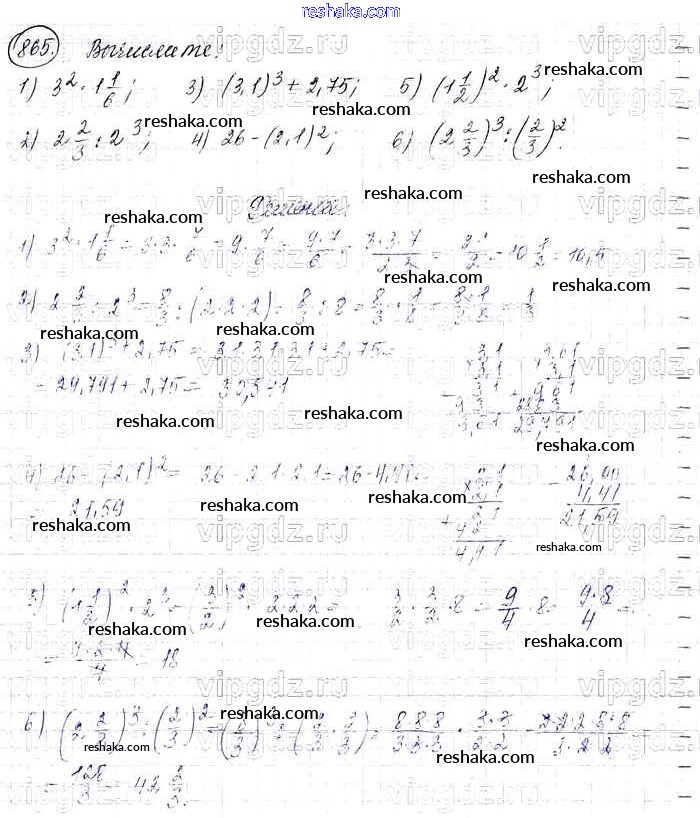 reshaka.com
865. Вычислите:
1) 3² · 1 1/6; 3) (3,1)³ + 2,75; 5) (1 1/2)² · 2³;
2) 2 2/3 : 2³; 4) 26 - (2,1)²; 6) (2 2/3)³ : (2/3)².
Решения.
1) 3² · 1 1/6 = 3·3· 7/6 = 9 · 7/6 = 9·7/6 = 3·3·7/2·3 = = 10 1/2 = 10,5
2) 2 2/3 : 2³ = 8/3 : (2·2·2) = 8/3 : 8 = 8/3 · 1/8 = 8·1/3·8 = 1/3
3) (3,1)³ + 2,75 = 3,1·3,1·3,1 + 2,75 =
= 29,791 + 2,75 = 32,541
4) 26 - (2,1)² = 26 - 2,1·2,1 = 26 - 4,41 =
21,59
5) (1 1/2)² · 2³ = (3/2)² · 2·2·2 = 3/2 · 3/2 · 8 = 9/4 · 8 = 9·8/4 =
= 9·2·4/4 = 18
6) (2 2/3)³ : (2/3)² = (8/3)³ : (2/3 · 2/3) = 8·8·8/3·3·3 · 3·3/2·2 = 2·2·2·8·8/3·2·2
= 128/3 = 42 2/3.